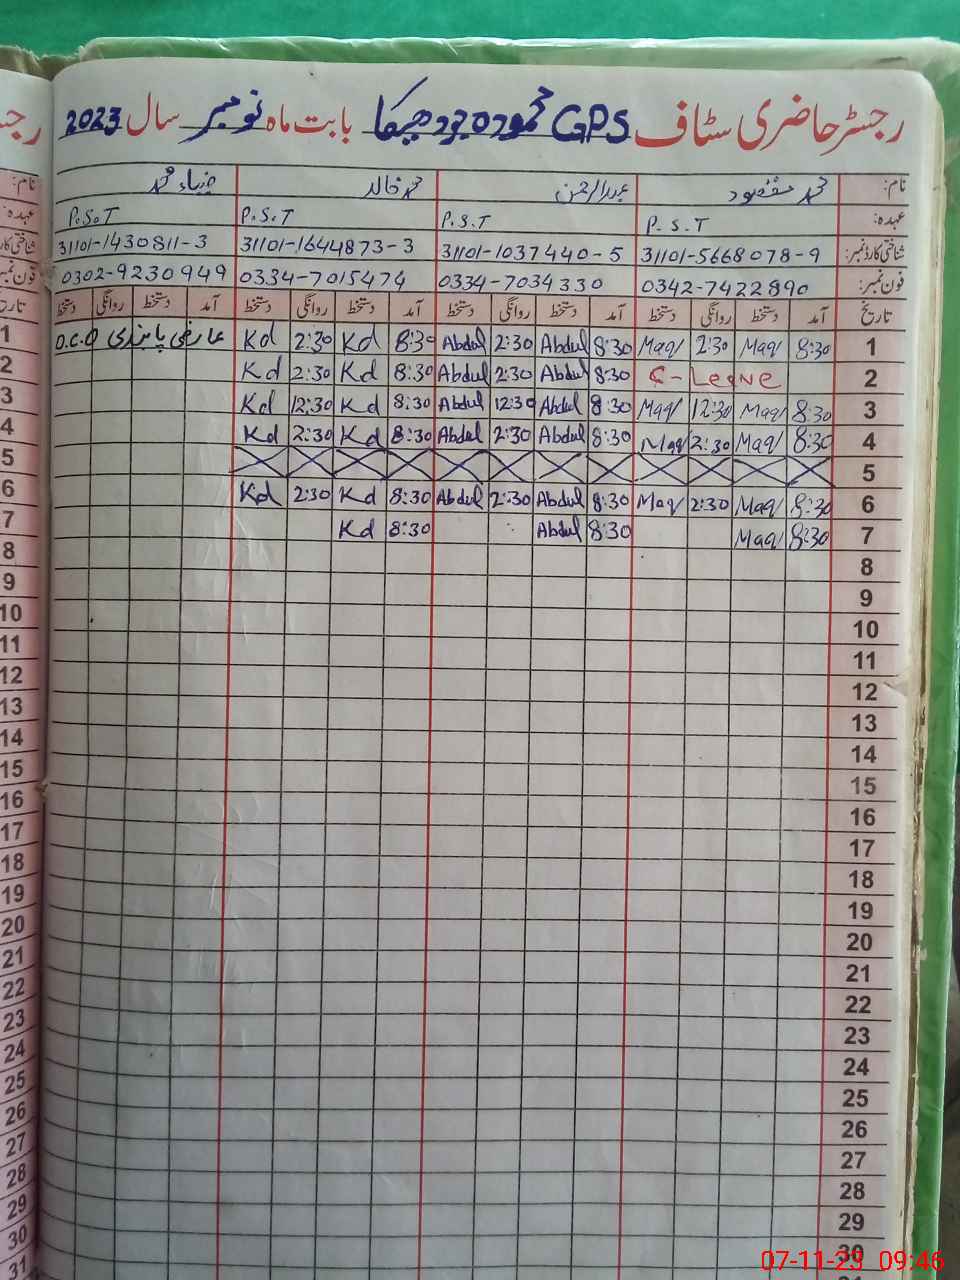 رجسٹر حاضری سٹاف GPS محمود موجود جھیکا بابت ماہ نومبر سال 2023
نام: محمد مقصود عبدالرحمن محمد خالد ضیاء محمد
عہدہ: P.S.T P.S.T P.S.T P.S.T
شناختی کارڈ نمبر: 31101-5668078-9 31101-1037440-5 31101-1644873-3 31101-1430811-3
فون نمبر: 0342-7422890 0334-7034330 0334-7015474 0302-9230949
تاریخ آمد دستخط روانگی دستخط آمد دستخط روانگی دستخط آمد دستخط روانگی دستخط آمد دستخط روانگی دستخط
1 8:30 Maq 2:30 Maq 8:30 Abdul 2:30 Abdul 8:30 Kd 2:30 Kd عارضی پابندی
2 C-Leave 8:30 Abdul 2:30 Abdul 8:30 Kd 2:30 Kd
3 8:30 Maq 12:30 Maq 8:30 Abdul 12:30 Abdul 8:30 Kd 12:30 Kd
4 8:30 Maq 2:30 Maq 8:30 Abdul 2:30 Abdul 8:30 Kd 2:30 Kd
5
6 8:30 Maq 2:30 Maq 8:30 Abdul 2:30 Abdul 8:30 Kd 2:30 Kd
7 8:30 Maq 8:30 Abdul 8:30 Kd
8
9
10
11
12
13
14
15
16
17
18
19
20
21
22
23
24
25
26
27
28
29
30
07-11-23 09:46